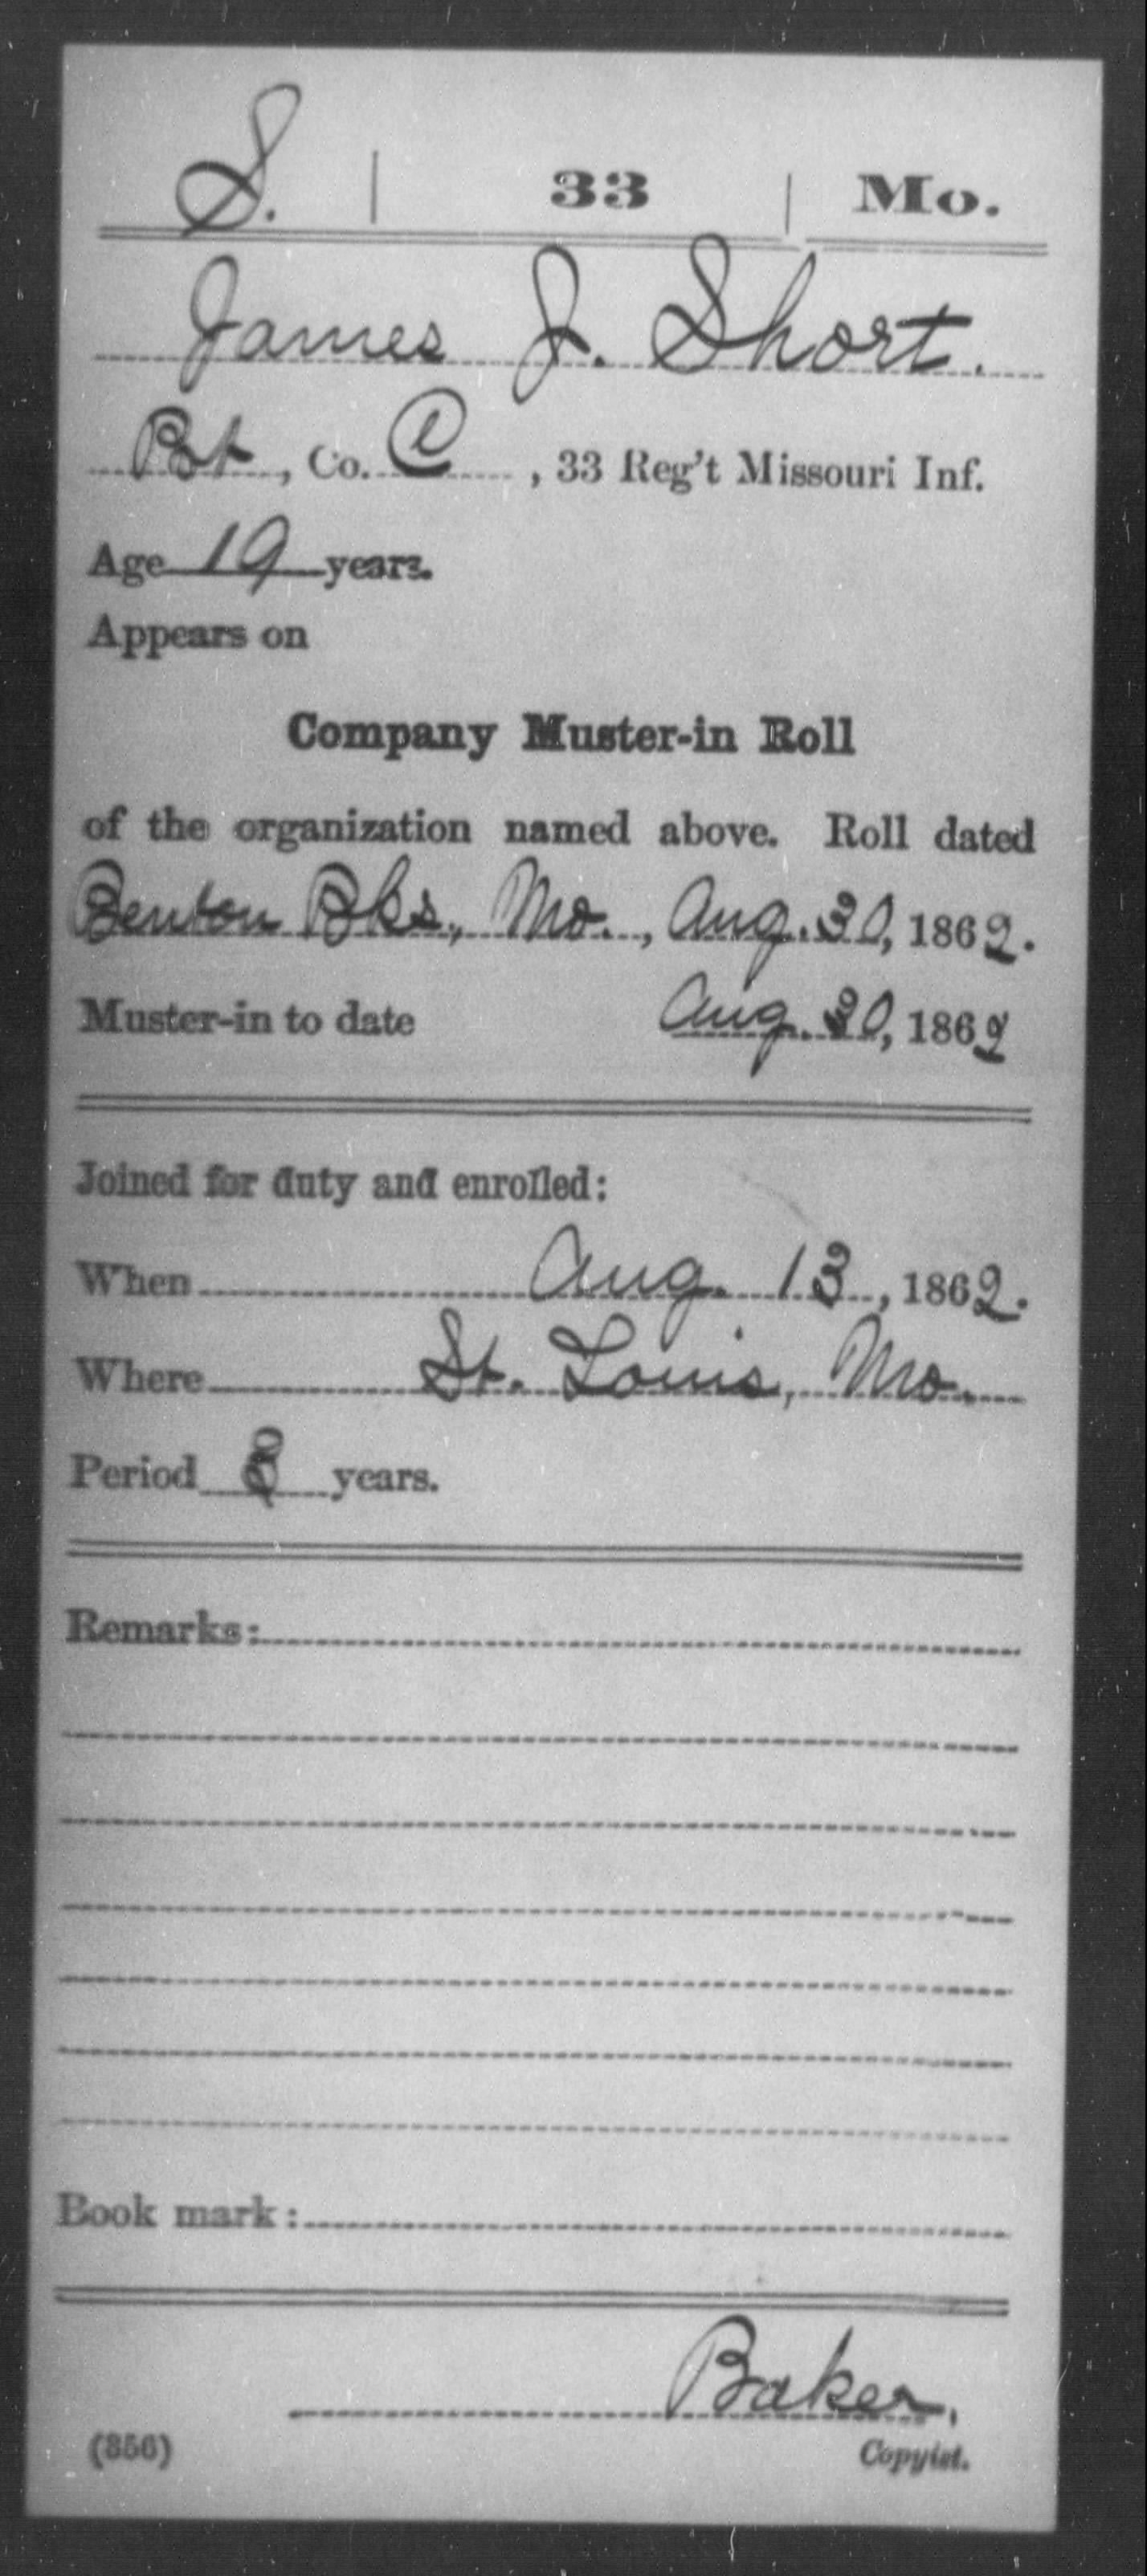 S. | 33 | Mo.
James J. Short.
Pvt, Co. C, 33 Reg't Missouri Inf.
Age 19 years.
Appears on
Company Muster-in Roll
of the organization named above. Roll dated
Benton Bks, Mo., Aug. 30, 1862.
Muster-in to date Aug. 30, 1862
Joined for duty and enrolled:
When Aug. 13, 1862.
Where St. Louis, Mo.
Period 3 years.
Remarks:
Book mark:
Baker,
(356) Copyist.